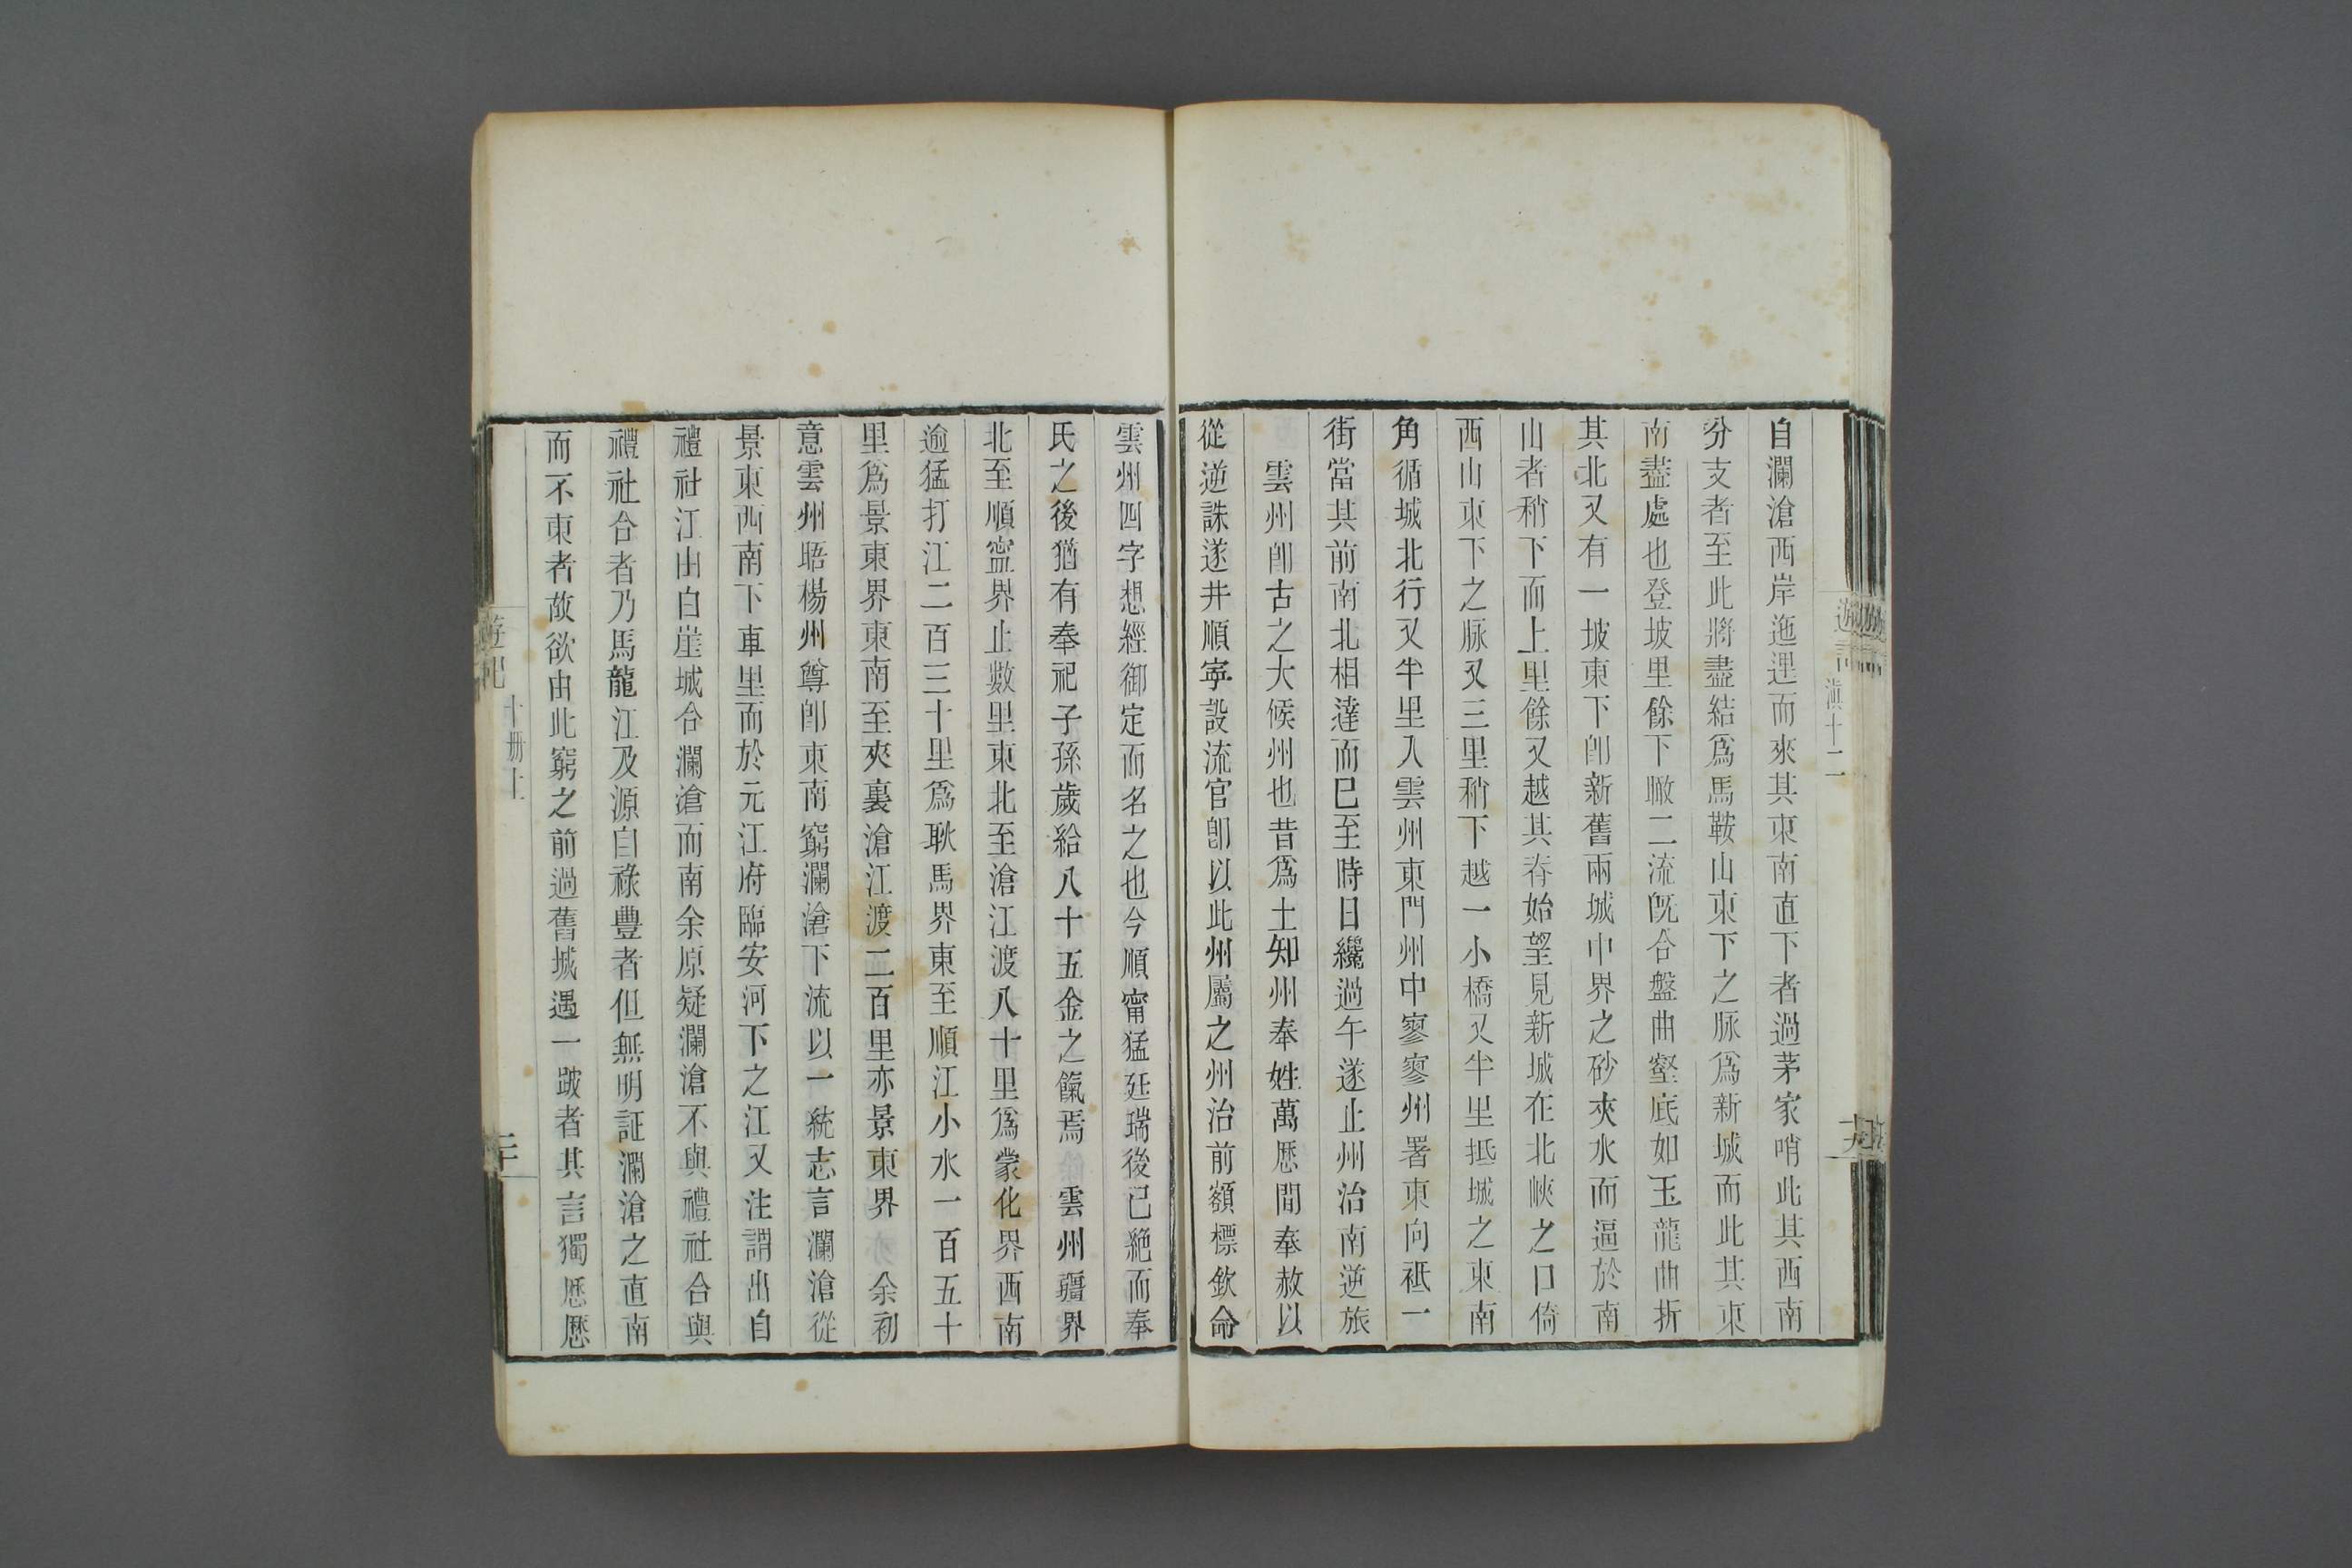 遊記
滇十二
十九
自瀾滄西岸迤逞而來其東南直下者過茅家哨此其西南
分支者至此將盡結爲馬鞍山東下之脉爲新城而此其東
南盡處也登坡里餘下瞰二流旣合盤曲壑底如玉龍曲折
其北又有一坡東下卽新舊兩城中界之砂夾水而逼於南
山者稍下而上里餘又越其脊始望見新城在北峽之口倚
西山東下之脉又三里稍下越一小橋又半里抵城之東南
角循城北行又半里入雲州東門州中寥寥州署東向衹一
街當其前南北相達而巳至時日纔過午遂止州治南逆旅
雲州卽古之大候州也昔爲土知州奉姓萬厯間奉赦以
從逆誅遂并順寧設流官卽以此州屬之州治前額標欽命
雲州四字想經御定而名之也今順甯猛廷瑞後已絶而奉
氏之後猶有奉祀子孫歲給八十五金之餼焉 雲州疆界
北至順寍界止數里東北至滄江渡八十里爲蒙化界西南
逾猛打江二百三十里爲耿馬界東至順江小水一百五十
里爲景東界東南至夾裏滄江渡二百里亦景東界 余初
意雲州晤楊州尊卽東南窮瀾滄下流以一統志言瀾滄從
景東西南下車里而於元江府臨安河下之江又注謂出自
禮社江由白崖城合瀾滄而南余原疑瀾滄不與禮社合與
禮社合者乃馬龍江及源自祿豐者但無明証瀾滄之直南
而不東者故欲由此窮之前過舊城遇一跛者其言獨歷歷
遊記
十册上
二十